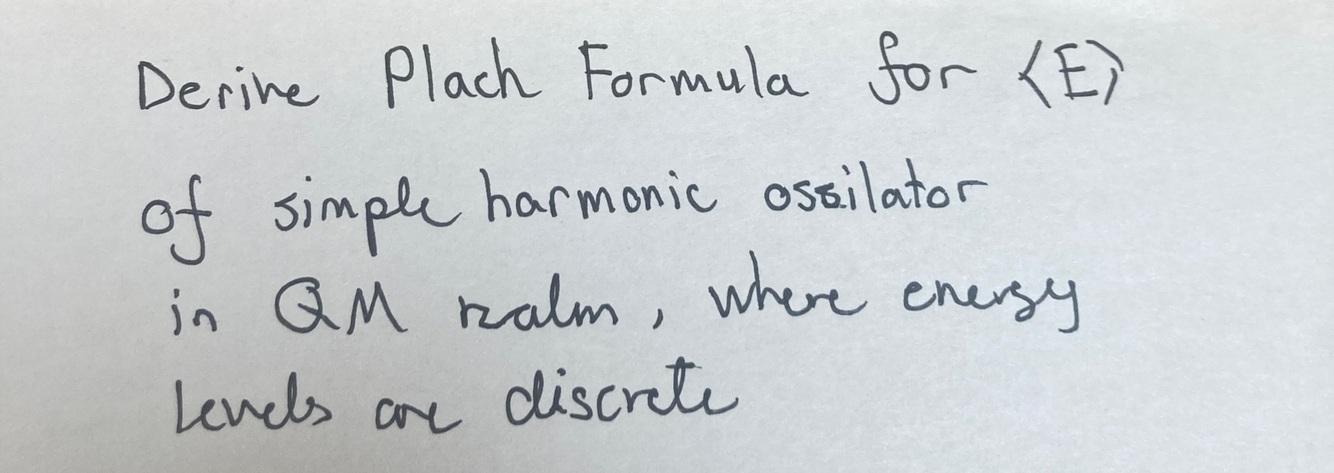 Derive Plach Formula for ⟨E⟩
of simple harmonic ossilator
in QM realm, where energy
levels are discrete